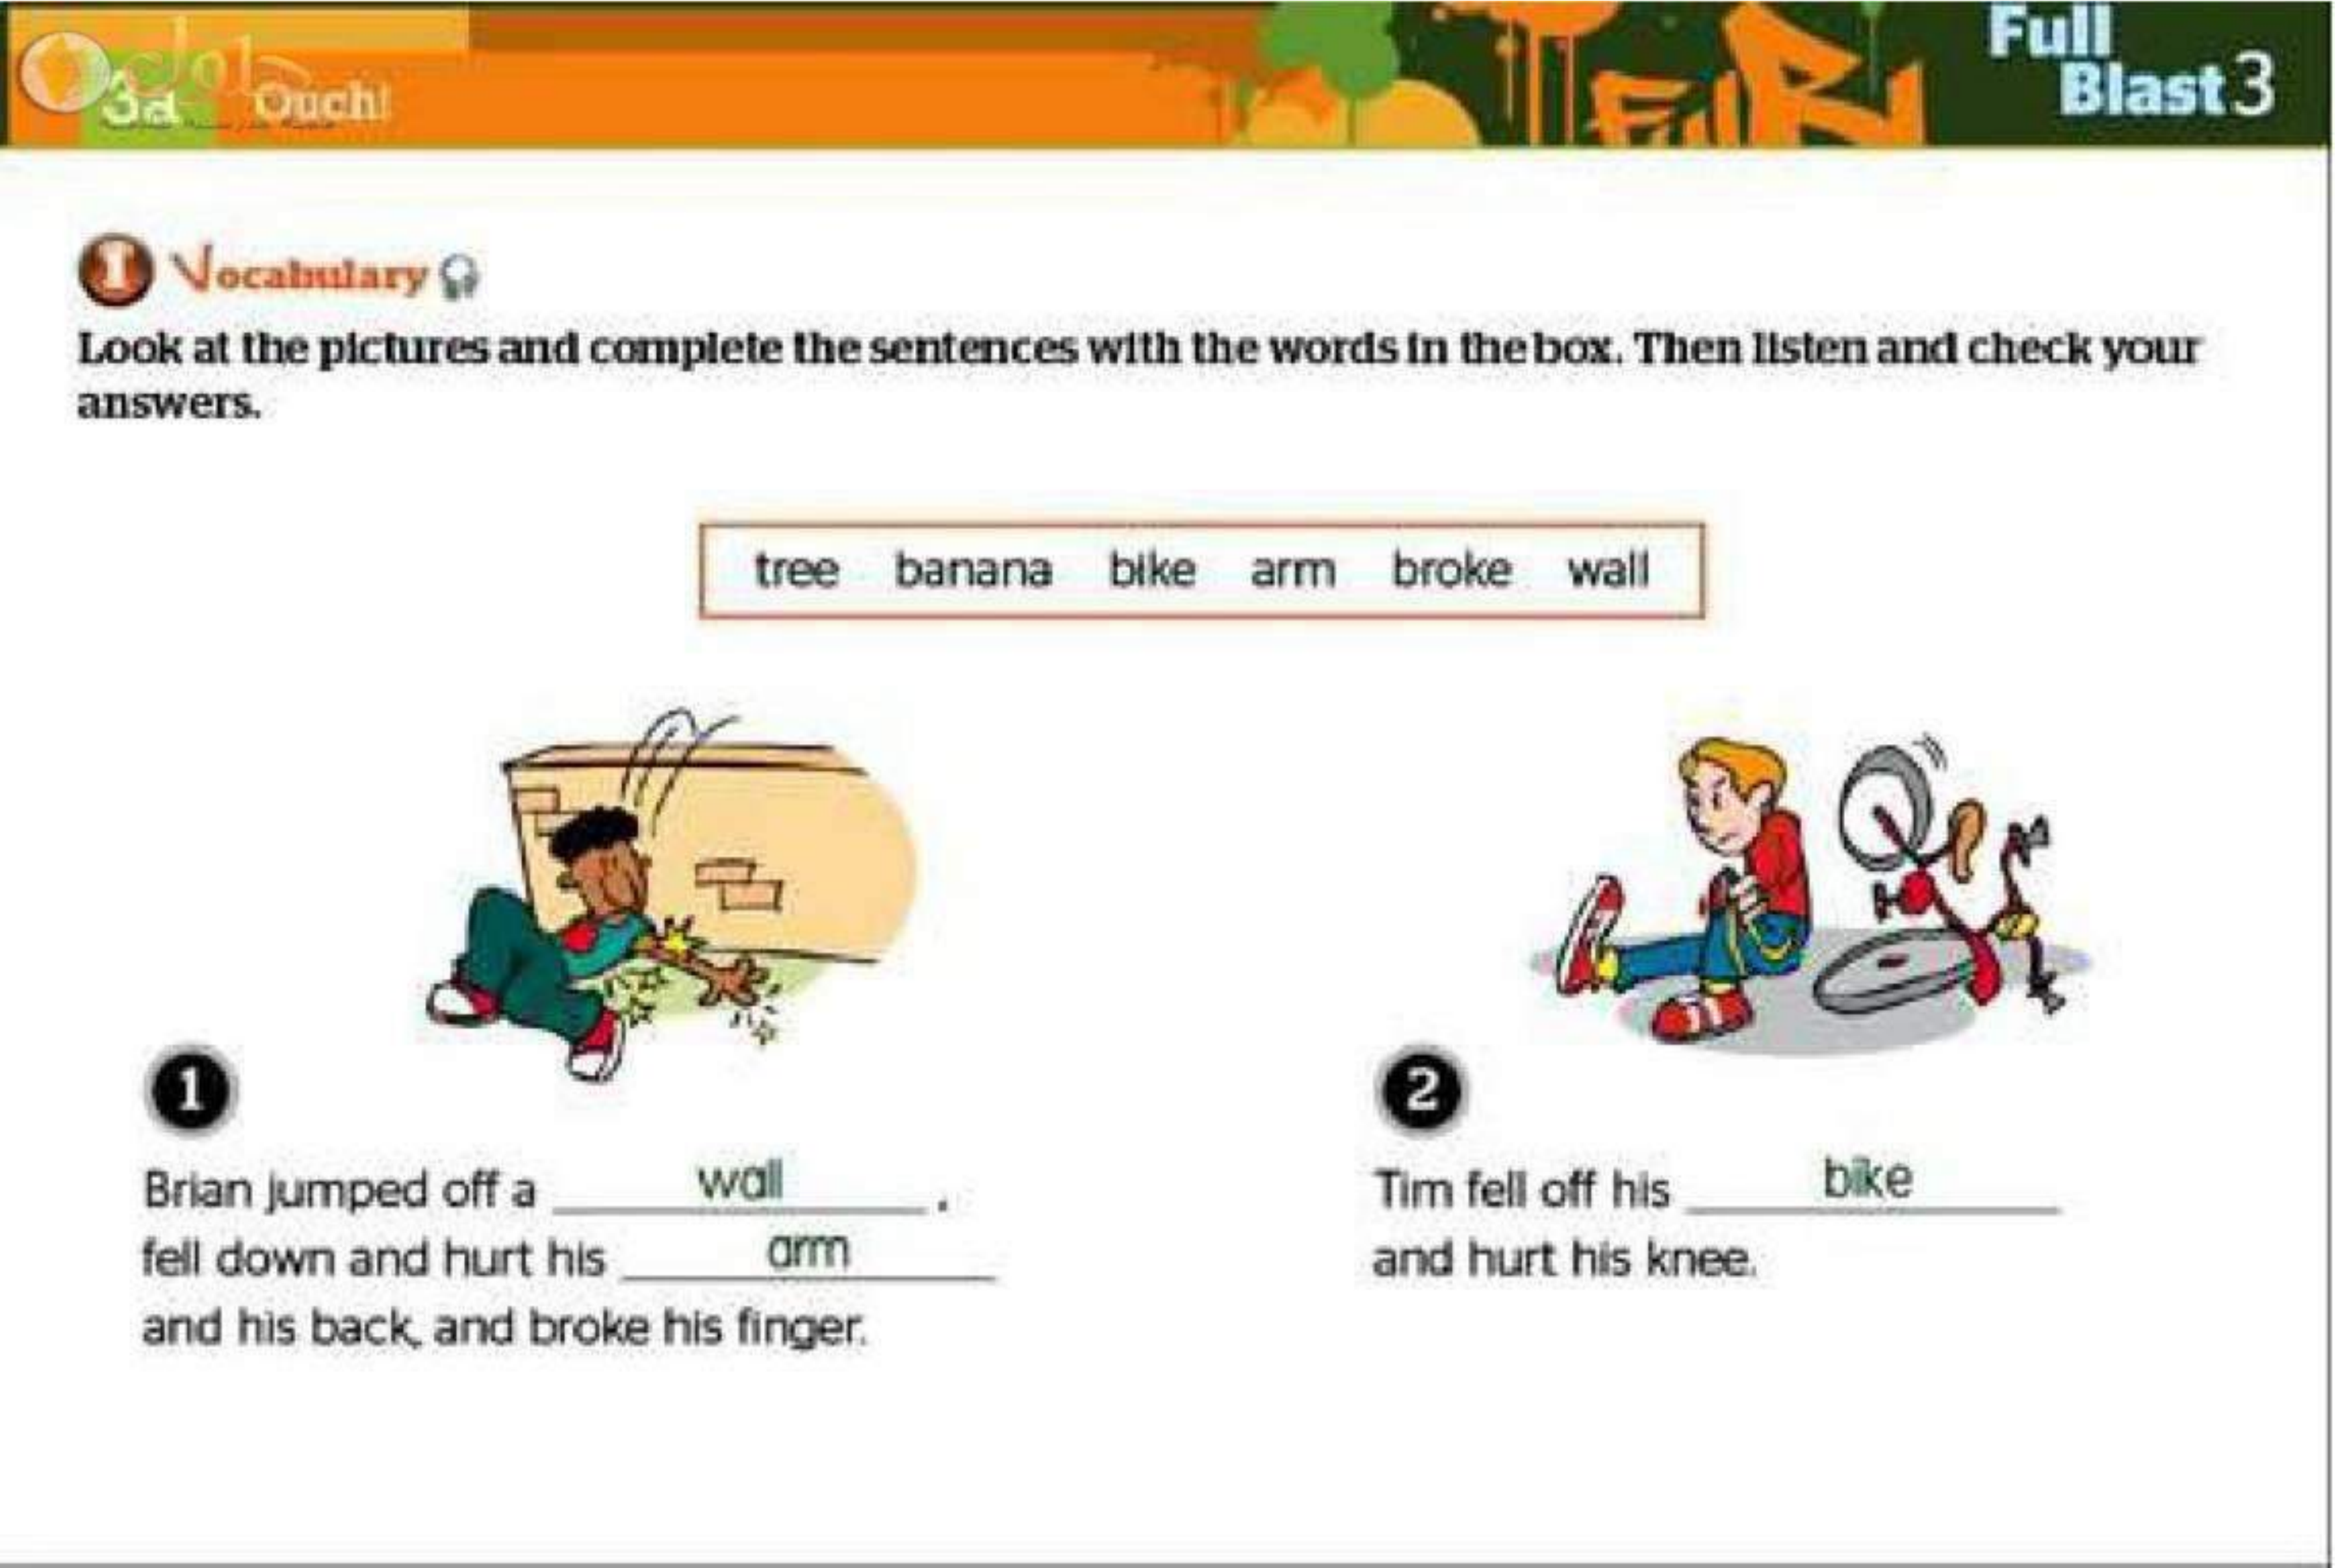 Full
Blast 3
حلول
3a Ouch!
1 Vocabulary
Look at the pictures and complete the sentences with the words in the box. Then listen and check your
answers.
tree banana bike arm broke wall
1
Brian jumped off a wall ,
fell down and hurt his arm
and his back, and broke his finger.
2
Tim fell off his bike
and hurt his knee.